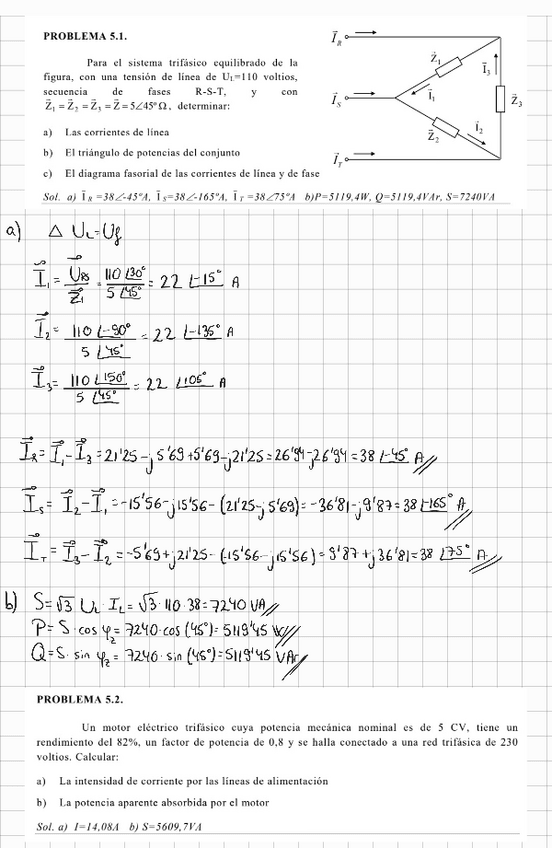 PROBLEMA 5.1.
Para el sistema trifásico equilibrado de la
figura, con una tensión de línea de U_L=110 voltios,
secuencia de fases R-S-T, y con
Z̄₁ = Z̄₂ = Z̄₃ = Z̄ = 5∠45º Ω, determinar:
Ī_R
Ī_S
Ī_T
Z̄₁
Ī₃
Ī₁
Z̄₃
Z̄₂
Ī₂
a) Las corrientes de línea
b) El triángulo de potencias del conjunto
c) El diagrama fasorial de las corrientes de línea y de fase
Sol. a) Ī_R =38∠-45ºA, Ī_S=38∠-165ºA, Ī_T =38∠75ºA b)P=5119,4W, Q=5119,4VAr, S=7240VA
a) △ U_L=U_f
I₁ = U_RS/Z₁ = 110∠30°/5∠45° = 22 ∠-15° A
I₂ = 110∠-90°/5∠45° = 22 ∠-135° A
I₃ = 110∠150°/5∠45° = 22 ∠105° A
I_R = I₁-I₃ = 21'25-j5'69+5'69-j21'25 = 26'94-j26'94 = 38 ∠-45° A
I_S = I₂-I₁ = -15'56-j15'56-(21'25-j5'69) = -36'81-j9'87 = 38 ∠-165° A
I_T = I₃-I₂ = -5'69+j21'25-(-15'56-j15'56) = 9'87+j36'81 = 38 ∠75° A
b) S=√3 · U_L · I_L = √3 · 110 · 38 = 7240 VA
P=S · cos φ_Z = 7240 · cos (45°) = 5119'45 W
Q=S · sin φ_Z = 7240 · sin (45°) = 5119'45 VAr
PROBLEMA 5.2.
Un motor eléctrico trifásico cuya potencia mecánica nominal es de 5 CV, tiene un
rendimiento del 82%, un factor de potencia de 0,8 y se halla conectado a una red trifásica de 230
voltios. Calcular:
a) La intensidad de corriente por las líneas de alimentación
b) La potencia aparente absorbida por el motor
Sol. a) I=14,08A b) S=5609,7VA